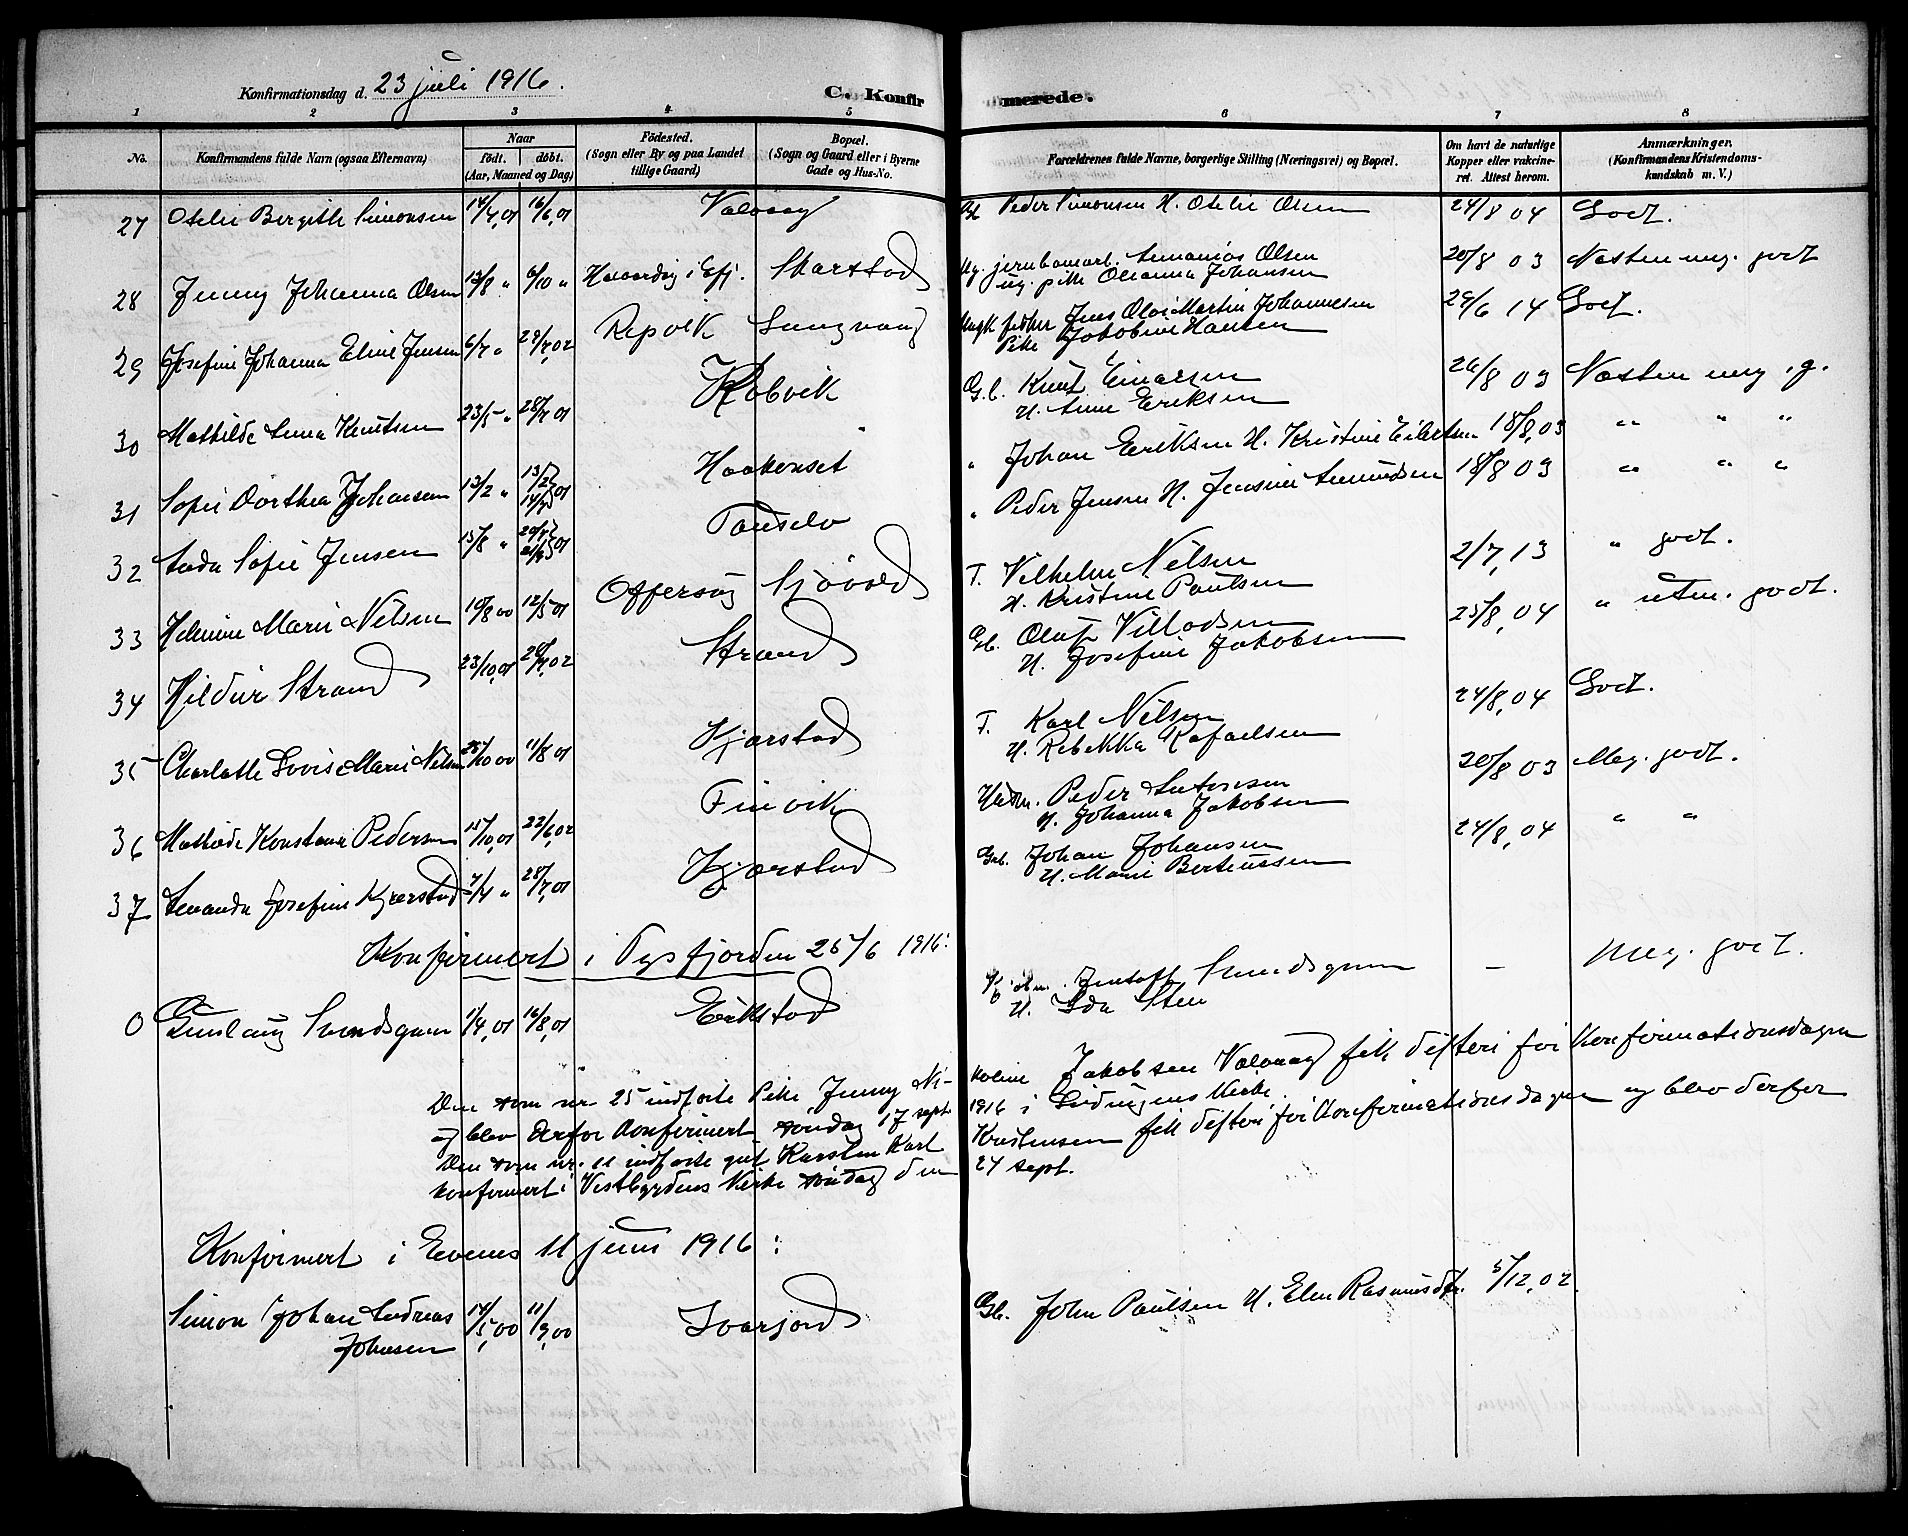 Konfirmationsdag d. 23 juli 1916. C. Konfirmerede.
1 2 3 4 5 6 7 8
No. Konfirmandens fulde Navn (ogsaa Efternavn) Naar födt. döbt. (Aar, Maaned og Dag) Födested. (Sogn eller By og paa Landet tillige Gaard) Bopæl. (Sogn og Gaard eller i Byerne Gade og Hus-No. Forældrenes fulde Navne, borgerlige Stilling (Næringsvei) og Bopæl. Om havt de naturlige Kopper eller vakcineret. Attest herom. Anmærkninger. (Konfirmandens Kristendomskundskab m. V.)
27 Otelie Bergitte Simonsen 14/4,01 16/6,01 Valvaag Peder Simonsen H. Otelie Olsen 24/8 04 Godt.
28 Jenny Johanna Olsen 13/8 " 6/10 " i Efj. Skarstad Ug. jernbanearb. Ananias Olsen
ug. pike Oleanna Johansen 20/8 03 Næsten meg. godt
29 Josefine Johanna Eline Jensen 6/7 " 29/7,02 Repvik Ungk. fisker Jens Olai Martin Johannesen
Pike Jakobine Hansen 29/6 14 Godt.
30 Mathilde Anna Knutsen 23/5 " 28/7 01 Kobvik G.b. Knut Einarsen
H. Anne Eriksen 26/8 03 Næsten meg. g.
31 Sofie Dorthea Johansen 13/2 " 13/2 01 Haakonset " Johan Eriksen H. Kristine Eilertsen 18/8,03 " " "
32 Anda Sofie Jensen 15/8 " 01 " Peder Jensen H. Jensine Amundsen 18/8 03 " " "
33 Helmine Marie Nilsen 10/8 00 12/5 01 Offersøy T. Vilhelm Nilsen
H. Kristine Paulsen 2/7,13 " godt.
34 Hildur Strand 23/10,01 02 Strand Gb. Olaf Villadsen
H. Josefine Jakobsen 25/8,04 " utm. godt.
35 Charlotte Lovise Marie Nilsen 25/10 00 11/8 01 Kjærstad T. Karl Nilsen
H. Rebekka Rafaelsen 24/8,04 Godt.
36 Konstanse Pedersen 15/10,01 22/6,02 Finvik Peder Antonsen
H. Johanna Jakobsen 20/8 03 Meg. godt.
37 Amanda Josefine Kjærstad 7/4 " 28/7,01 Kjærstad Gb. Johan Johansen
H. Marie Berteussen 24/8,04 " "
Konfirmert i Tysfjorden 25/6 1916:
0 Gunlaug Svendsgaen 1/4,01 16/8,01 Eikstad Svendsgaen
H. Ida Sten — Meg. godt.
Den som nr. 25 indførte Pike, Jenny Nikoline Jakobsen Valvaag fik difteri før konfirmationsdagen
og blev derfor konfirmert søndag 17 sept. 1916 i Lødingens Kirke.
Den som nr. 11 indførte gut Karsten Karl Kristensen fik difteri før konfirmationsdagen og blev derfor
konfirmert i Vestbygdens Kirke søndag den 24 sept.
Konfirmert i Evenes 11 juni 1916:
Simon Johan Andreas
Johnsen 14/5,00 11/9,00 Ivarjord Gb. John Paulsen H. Elen Rasmusdtr. 5/12,02